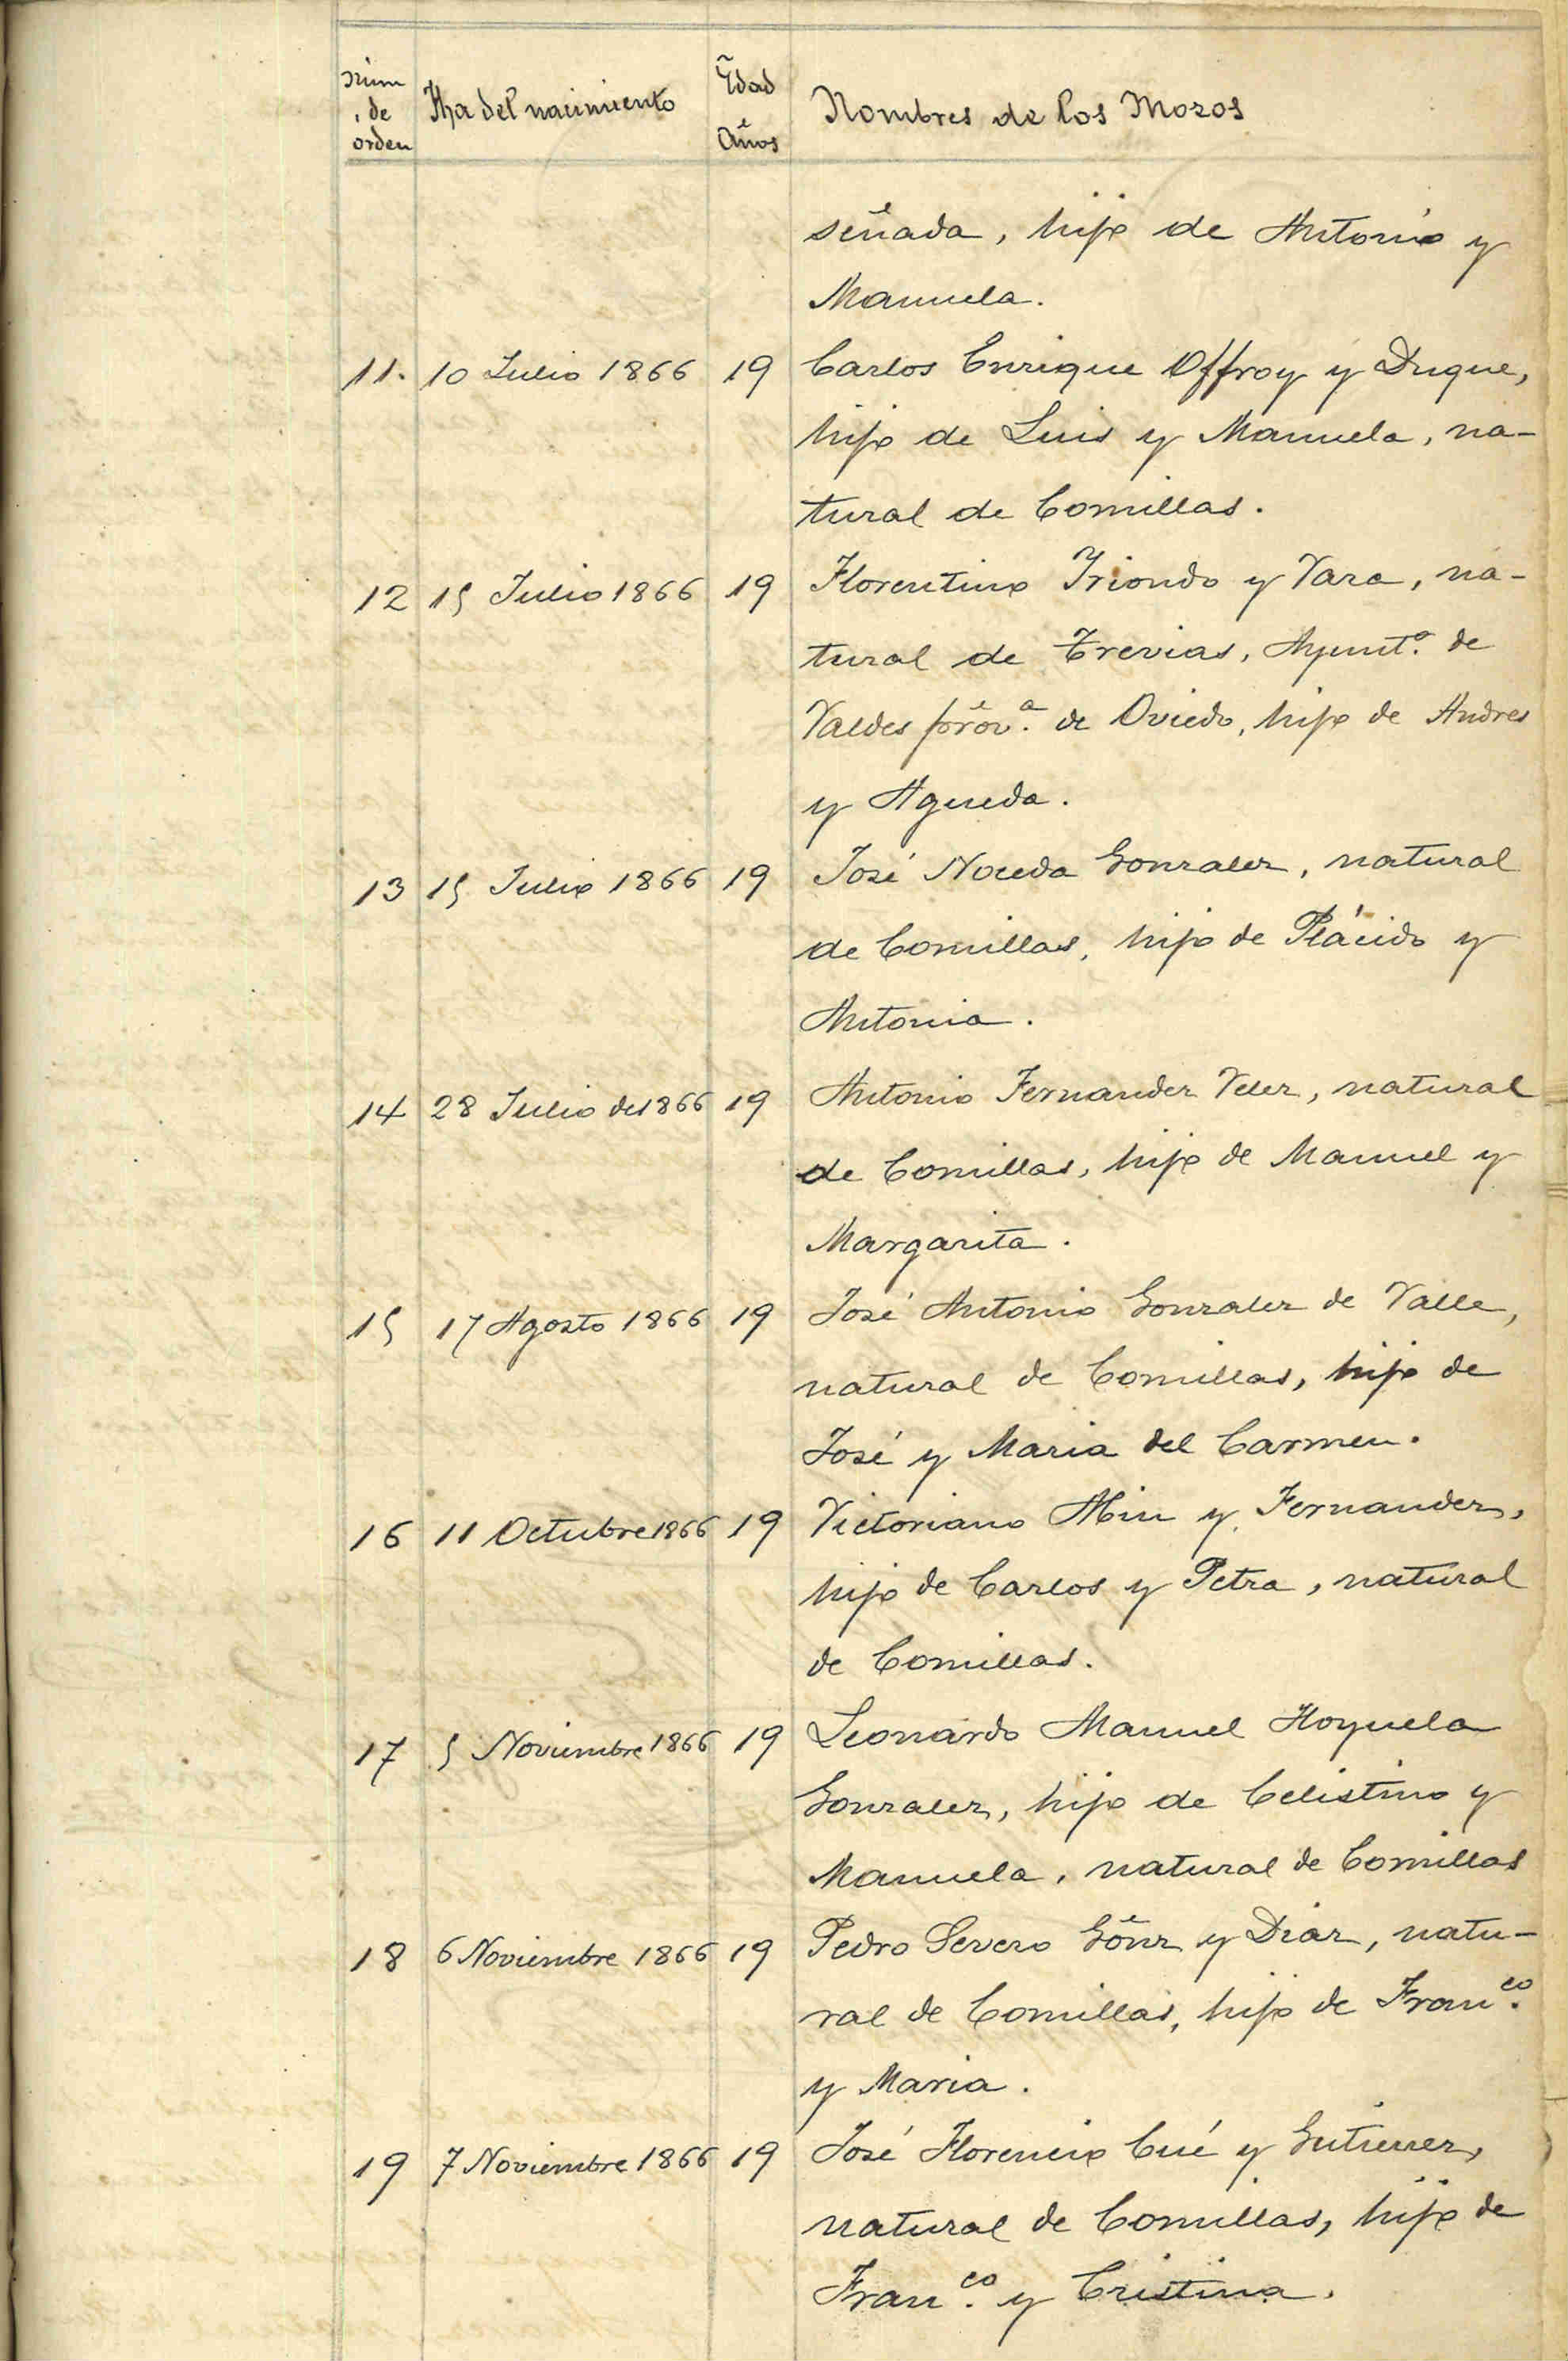 Núm de orden | Fha del nacimiento | Edad Años | Nombres de los Mozos
señada, hijo de Antonio y
Manuela.
11. | 10 Julio 1866 | 19 | Carlos Enrique Offroy y Duque,
hijo de Luis y Manuela, na-
tural de Comillas.
12 | 15 Julio 1866 | 19 | Florentino Iriondo y Vara, na-
tural de Trevias, Ayuntº. de
Valdes provª. de Oviedo, hijo de Andres
y Agueda.
13 | 15 Julio 1866 | 19 | José Noceda Gonzalez, natural
de Comillas, hijo de Plácido y
Antonia.
14 | 28 Julio de 1866 | 19 | Antonio Fernandez Velez, natural
de Comillas, hijo de Manuel y
Margarita.
15 | 17 Agosto 1866 | 19 | José Antonio Gonzalez de Valle,
natural de Comillas, hijo de
José y Maria del Carmen.
16 | 11 Octubre 1866 | 19 | Victoriano y Fernandez,
hijo de Carlos y Petra, natural
de Comillas.
17 | 5 Noviembre 1866 | 19 | Leonardo Manuel Hoyuela
Gonzalez, hijo de Celistino y
Manuela, natural de Comillas
18 | 6 Noviembre 1866 | 19 | Pedro Severo Gonz y Diaz, natu-
ral de Comillas, hijo de Franco.
y Maria.
19 | 7 Noviembre 1866 | 19 | José Florencio Cué y Gutierrez,
natural de Comillas, hijo de
Franco. y Cristina.